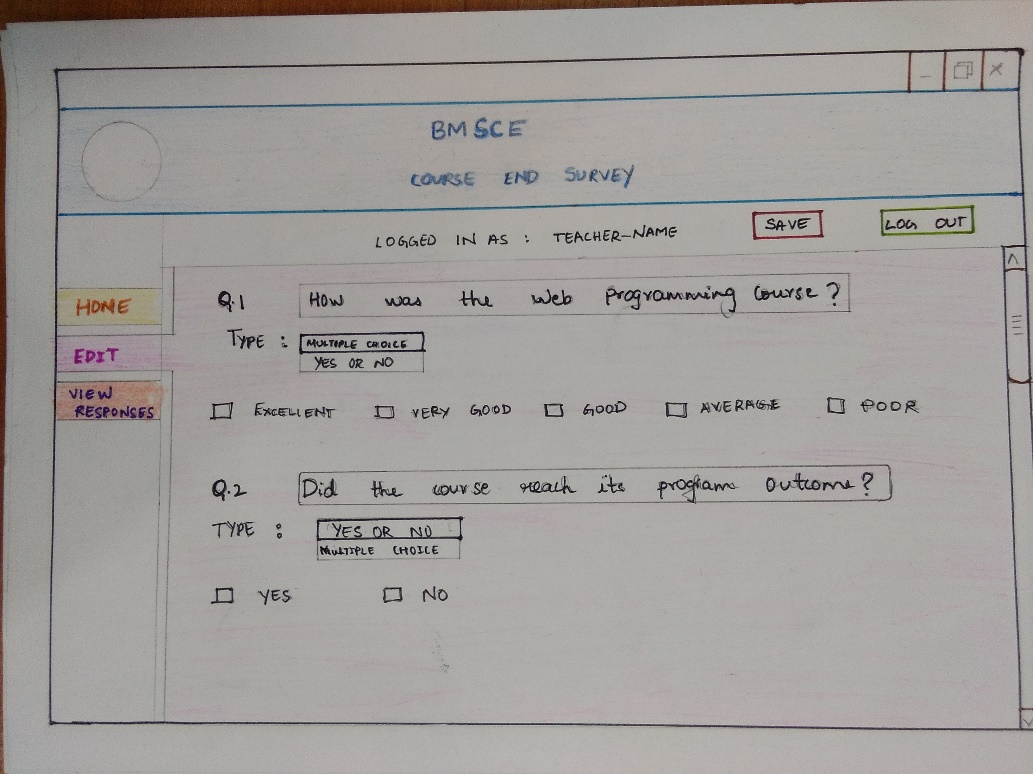 BMSCE
COURSE END SURVEY
LOGGED IN AS : TEACHER-NAME
SAVE
LOG OUT
HOME
EDIT
VIEW
RESPONSES
Q.1 How was the Web programming course ?
TYPE : MULTIPLE CHOICE
YES OR NO
EXCELLENT VERY GOOD GOOD AVERAGE POOR
Q.2 Did the course reach its program outcome ?
TYPE : YES OR NO
MULTIPLE CHOICE
YES NO